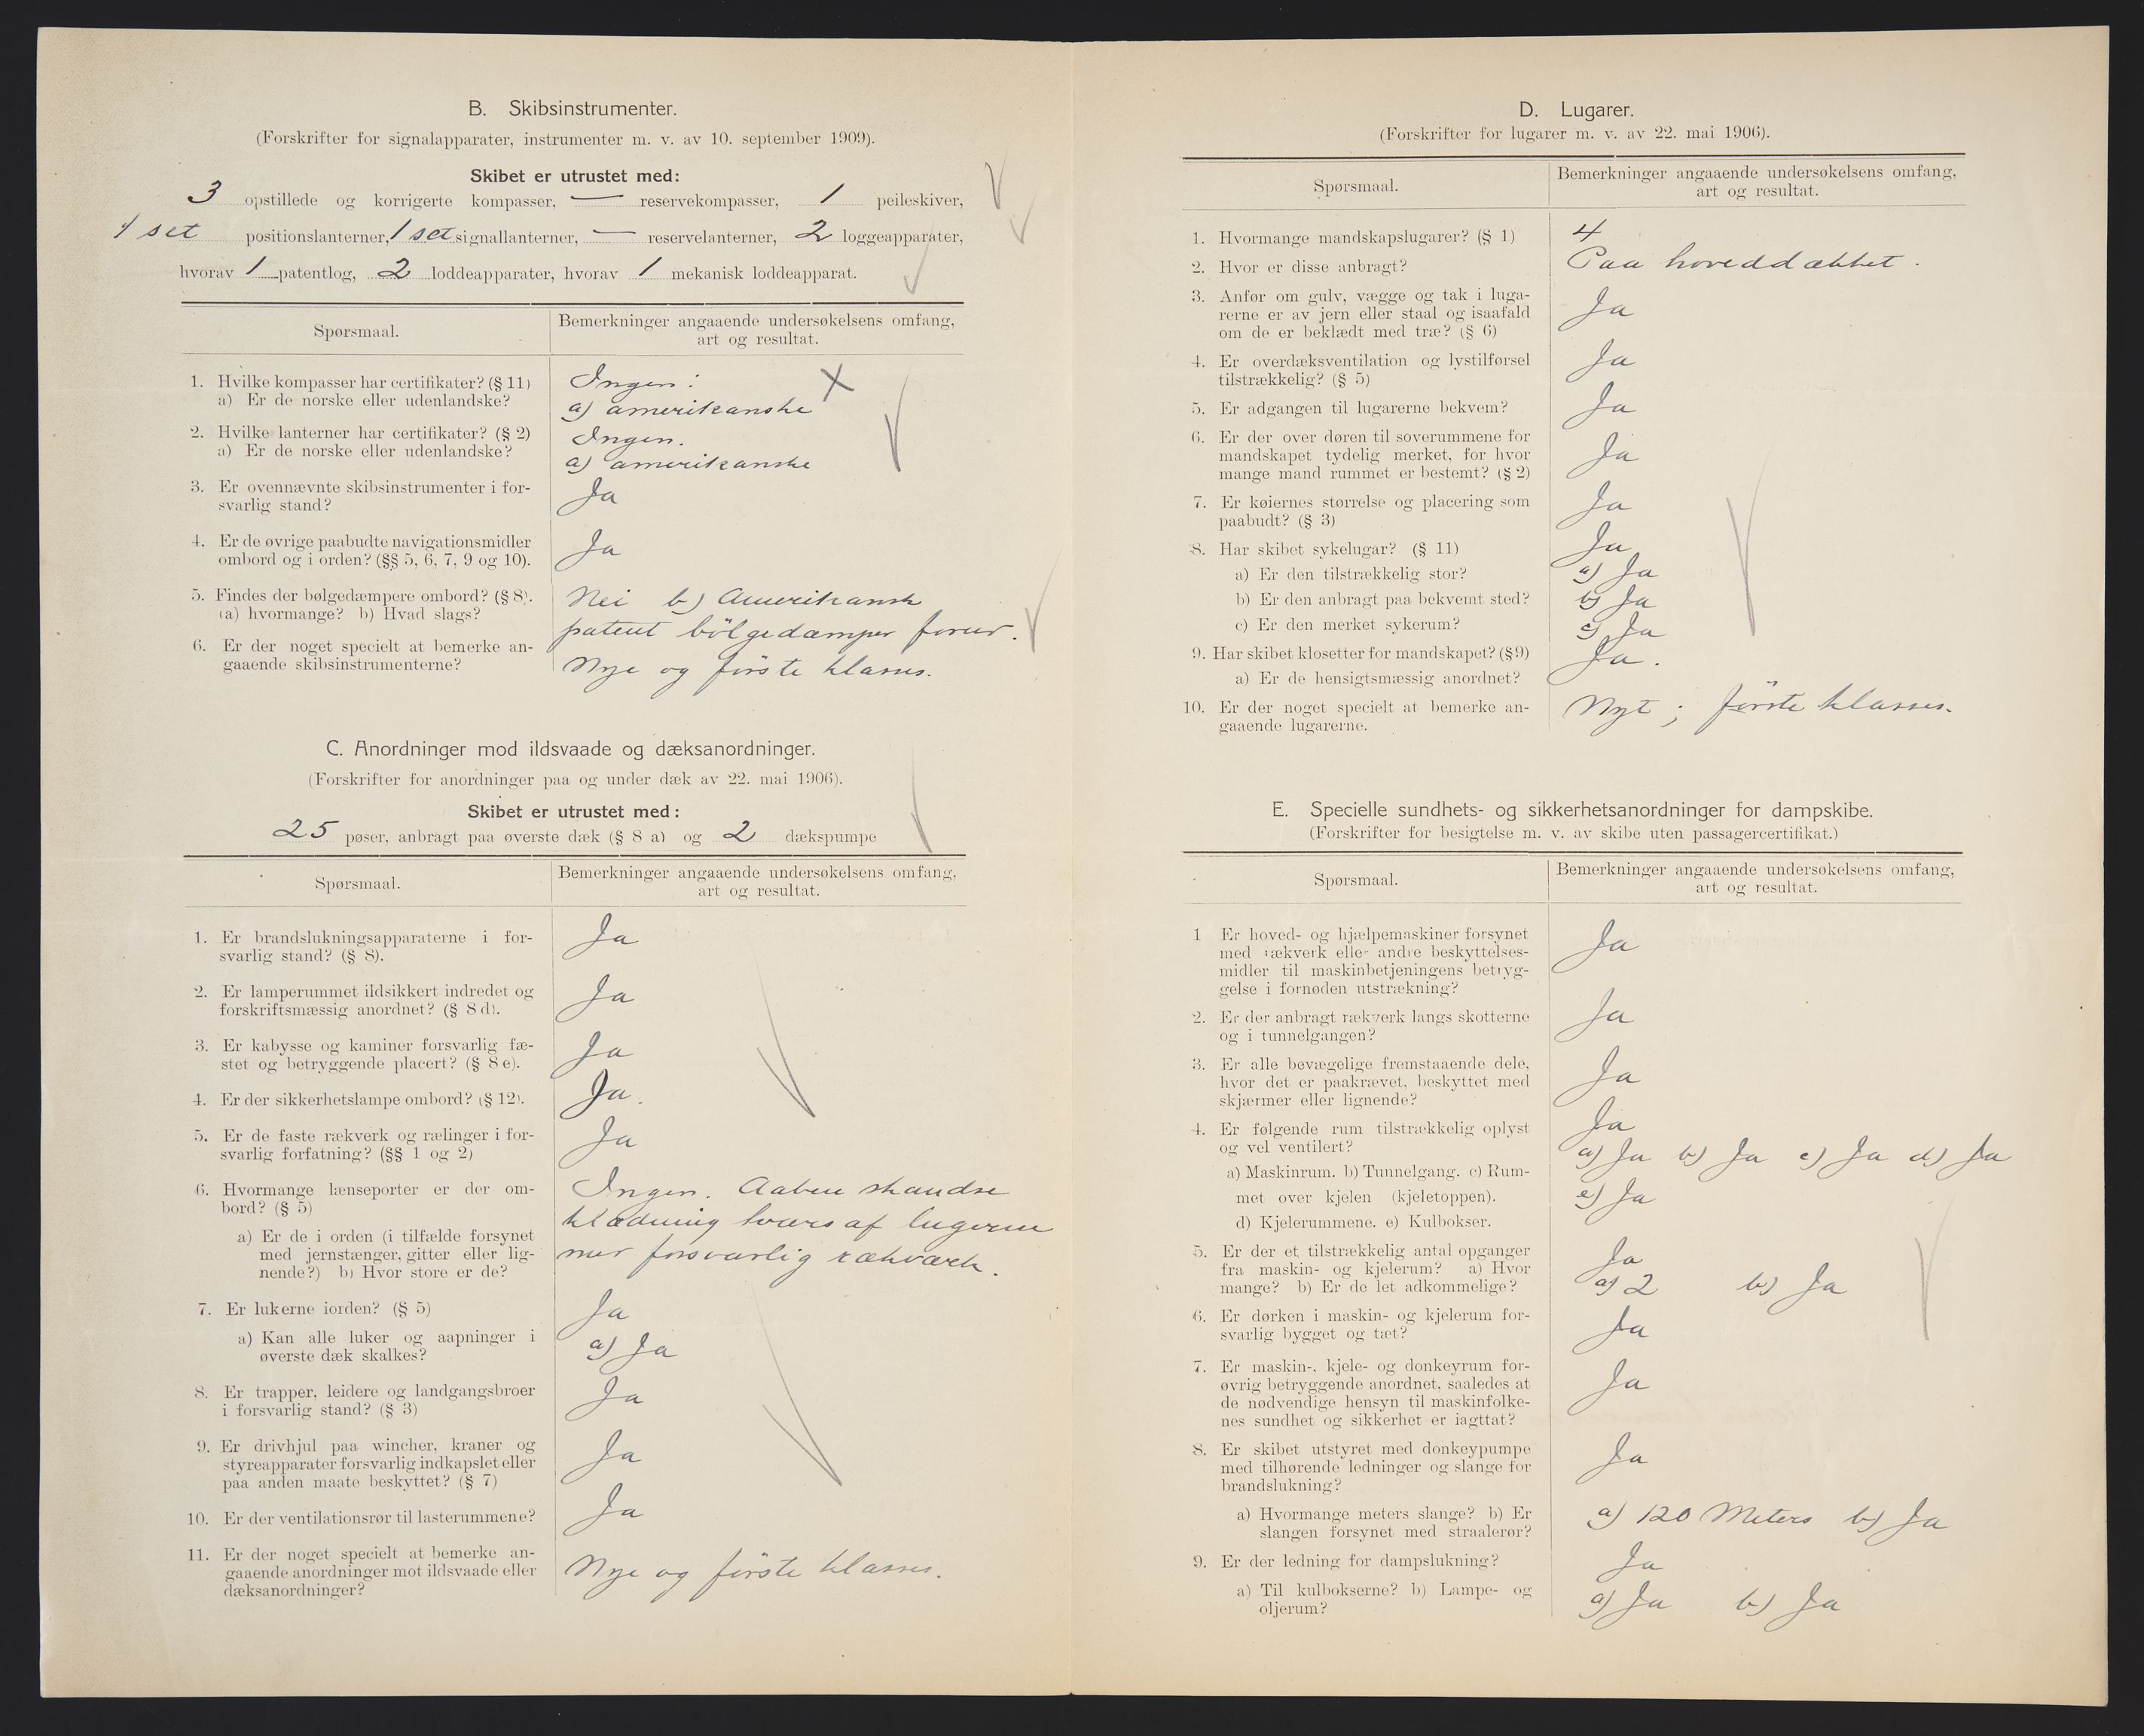 B. Skibsinstrumenter.
(Forskrifter for signalapparater, instrumenter m. v. av 10. september 1909).
Skibet er utrustet med:
3 opstillede og korrigerte kompasser, — reservekompasser, 1 peileskiver,
1 set positionslanterner, 1 set signallanterner, — reservelanterner, 2 loggeapparater,
hvorav 1 patentlog, 2 loddeapparater, hvorav 1 mekanisk loddeapparat.
Spørsmaal.
Bemerkninger angaaende undersøkelsens omfang,
art og resultat.
1. Hvilke kompasser har certifikater? (§ 11)
a) Er de norske eller udenlandske?
Ingen:
a) amerikanske
2. Hvilke lanterner har certifikater? (§ 2)
a) Er de norske eller udenlandske?
Ingen.
a) amerikanske
3. Er ovennævnte skibsinstrumenter i for-
svarlig stand?
Ja
4. Er de øvrige paabudte navigationsmidler
ombord og i orden? (§§ 5, 6, 7, 9 og 10).
Ja
5. Findes der bølgedæmpere ombord? (§ 8).
(a) hvormange? b) Hvad slags?
Nei b) Amerikansk
patent bölgedæmper forud.
6. Er der noget specielt at bemerke an-
gaaende skibsinstrumenterne?
Nye og förste klasses.
C. Anordninger mod ildsvaade og dæksanordninger.
(Forskrifter for anordninger paa og under dæk av 22. mai 1906).
Skibet er utrustet med:
25 pøser, anbragt paa øverste dæk (§ 8 a) og 2 dækspumpe
Spørsmaal.
Bemerkninger angaaende undersøkelsens omfang,
art og resultat.
1. Er brandslukningsapparaterne i for-
svarlig stand? (§ 8).
Ja
2. Er lamperummet ildsikkert indredet og
forskriftsmæssig anordnet? (§ 8 d).
Ja
3. Er kabysse og kaminer forsvarlig fæ-
stet og betryggende placert? (§ 8 e).
Ja
4. Er der sikkerhetslampe ombord? (§ 12).
Ja.
5. Er de faste rækverk og rælinger i for-
svarlig forfatning? (§§ 1 og 2)
Ja
6. Hvormange lænseporter er der om-
bord? (§ 5)
a) Er de i orden (i tilfælde forsynet
med jernstænger, gitter eller lig-
nende?) b) Hvor store er de?
Ingen. Aaben skandse
klædning tværs af lugerne
mer forsvarlig rækværk.
7. Er lukerne iorden? (§ 5)
Ja
a) Kan alle luker og aapninger i
øverste dæk skalkes?
a) Ja
8. Er trapper, leidere og landgangsbroer
i forsvarlig stand? (§ 3)
Ja
9. Er drivhjul paa wincher, kraner og
styreapparater forsvarlig indkapslet eller
paa anden maate beskyttet? (§ 7)
Ja
10. Er der ventilationsrør til lasterummene?
Ja
11. Er der noget specielt at bemerke an-
gaaende anordninger mot ildsvaade eller
dæksanordninger?
Nye og förste klasses.
D. Lugarer.
(Forskrifter for lugarer m. v. av 22. mai 1906).
Spørsmaal.
Bemerkninger angaaende undersøkelsens omfang,
art og resultat.
1. Hvormange mandskapslugarer? (§ 1)
4
2. Hvor er disse anbragt?
Paa hoveddækket.
3. Anfør om gulv, vægge og tak i luga-
rerne er av jern eller staal og isaafald
om de er beklædt med træ? (§ 6)
Ja
4. Er overdæksventilation og lystilførsel
tilstrækkelig? (§ 5)
Ja
5. Er adgangen til lugarerne bekvem?
Ja
6. Er der over døren til soverummene for
mandskapet tydelig merket, for hvor
mange mand rummet er bestemt? (§ 2)
Ja
7. Er køiernes størrelse og placering som
paabudt? (§ 3)
Ja
8. Har skibet sykelugar? (§ 11)
Ja
a) Er den tilstrækkelig stor?
a) Ja
b) Er den anbragt paa bekvemt sted?
b) Ja
c) Er den merket sykerum?
c) Ja
9. Har skibet klosetter for mandskapet? (§ 9)
a) Er de hensigtsmæssig anordnet?
Ja.
10. Er der noget specielt at bemerke an-
gaaende lugarerne.
Nyt; förste klasses.
E. Specielle sundhets- og sikkerhetsanordninger for dampskibe.
(Forskrifter for besigtelse m. v. av skibe uten passagercertifikat.)
Spørsmaal.
Bemerkninger angaaende undersøkelsens omfang,
art og resultat.
1 Er hoved- og hjælpemaskiner forsynet
med rækverk eller andre beskyttelses-
midler til maskinbetjeningens betryg-
gelse i fornøden utstrækning?
Ja
2. Er der anbragt rækverk langs skotterne
og i tunnelgangen?
Ja
3. Er alle bevægelige fremstaaende dele,
hvor det er paakrævet, beskyttet med
skjærmer eller lignende?
Ja
4. Er følgende rum tilstrækkelig oplyst
og vel ventilert?
Ja
a) Maskinrum. b) Tunnelgang. c) Rum-
met over kjelen (kjeletoppen).
d) Kjelerummene. e) Kulbokser.
a) Ja b) Ja c) Ja d) Ja
e) Ja
5. Er der et tilstrækkelig antal opganger
fra maskin- og kjelerum? a) Hvor
mange? b) Er de let adkommelige?
Ja
a) 2 b) Ja
6. Er dørken i maskin- og kjelerum for-
svarlig bygget og tæt?
Ja
7. Er maskin-, kjele- og donkeyrum for-
øvrig betryggende anordnet, saaledes at
de nødvendige hensyn til maskinfolke-
nes sundhet og sikkerhet er iagttat?
Ja
8. Er skibet utstyret med donkeypumpe
med tilhørende ledninger og slange for
brandslukning?
Ja
a) Hvormange meters slange? b) Er
slangen forsynet med straalerør?
a) 120 Meters b) Ja
9. Er der ledning for dampslukning?
Ja
a) Til kulbokserne? b) Lampe- og
oljerum?
a) Ja b) Ja